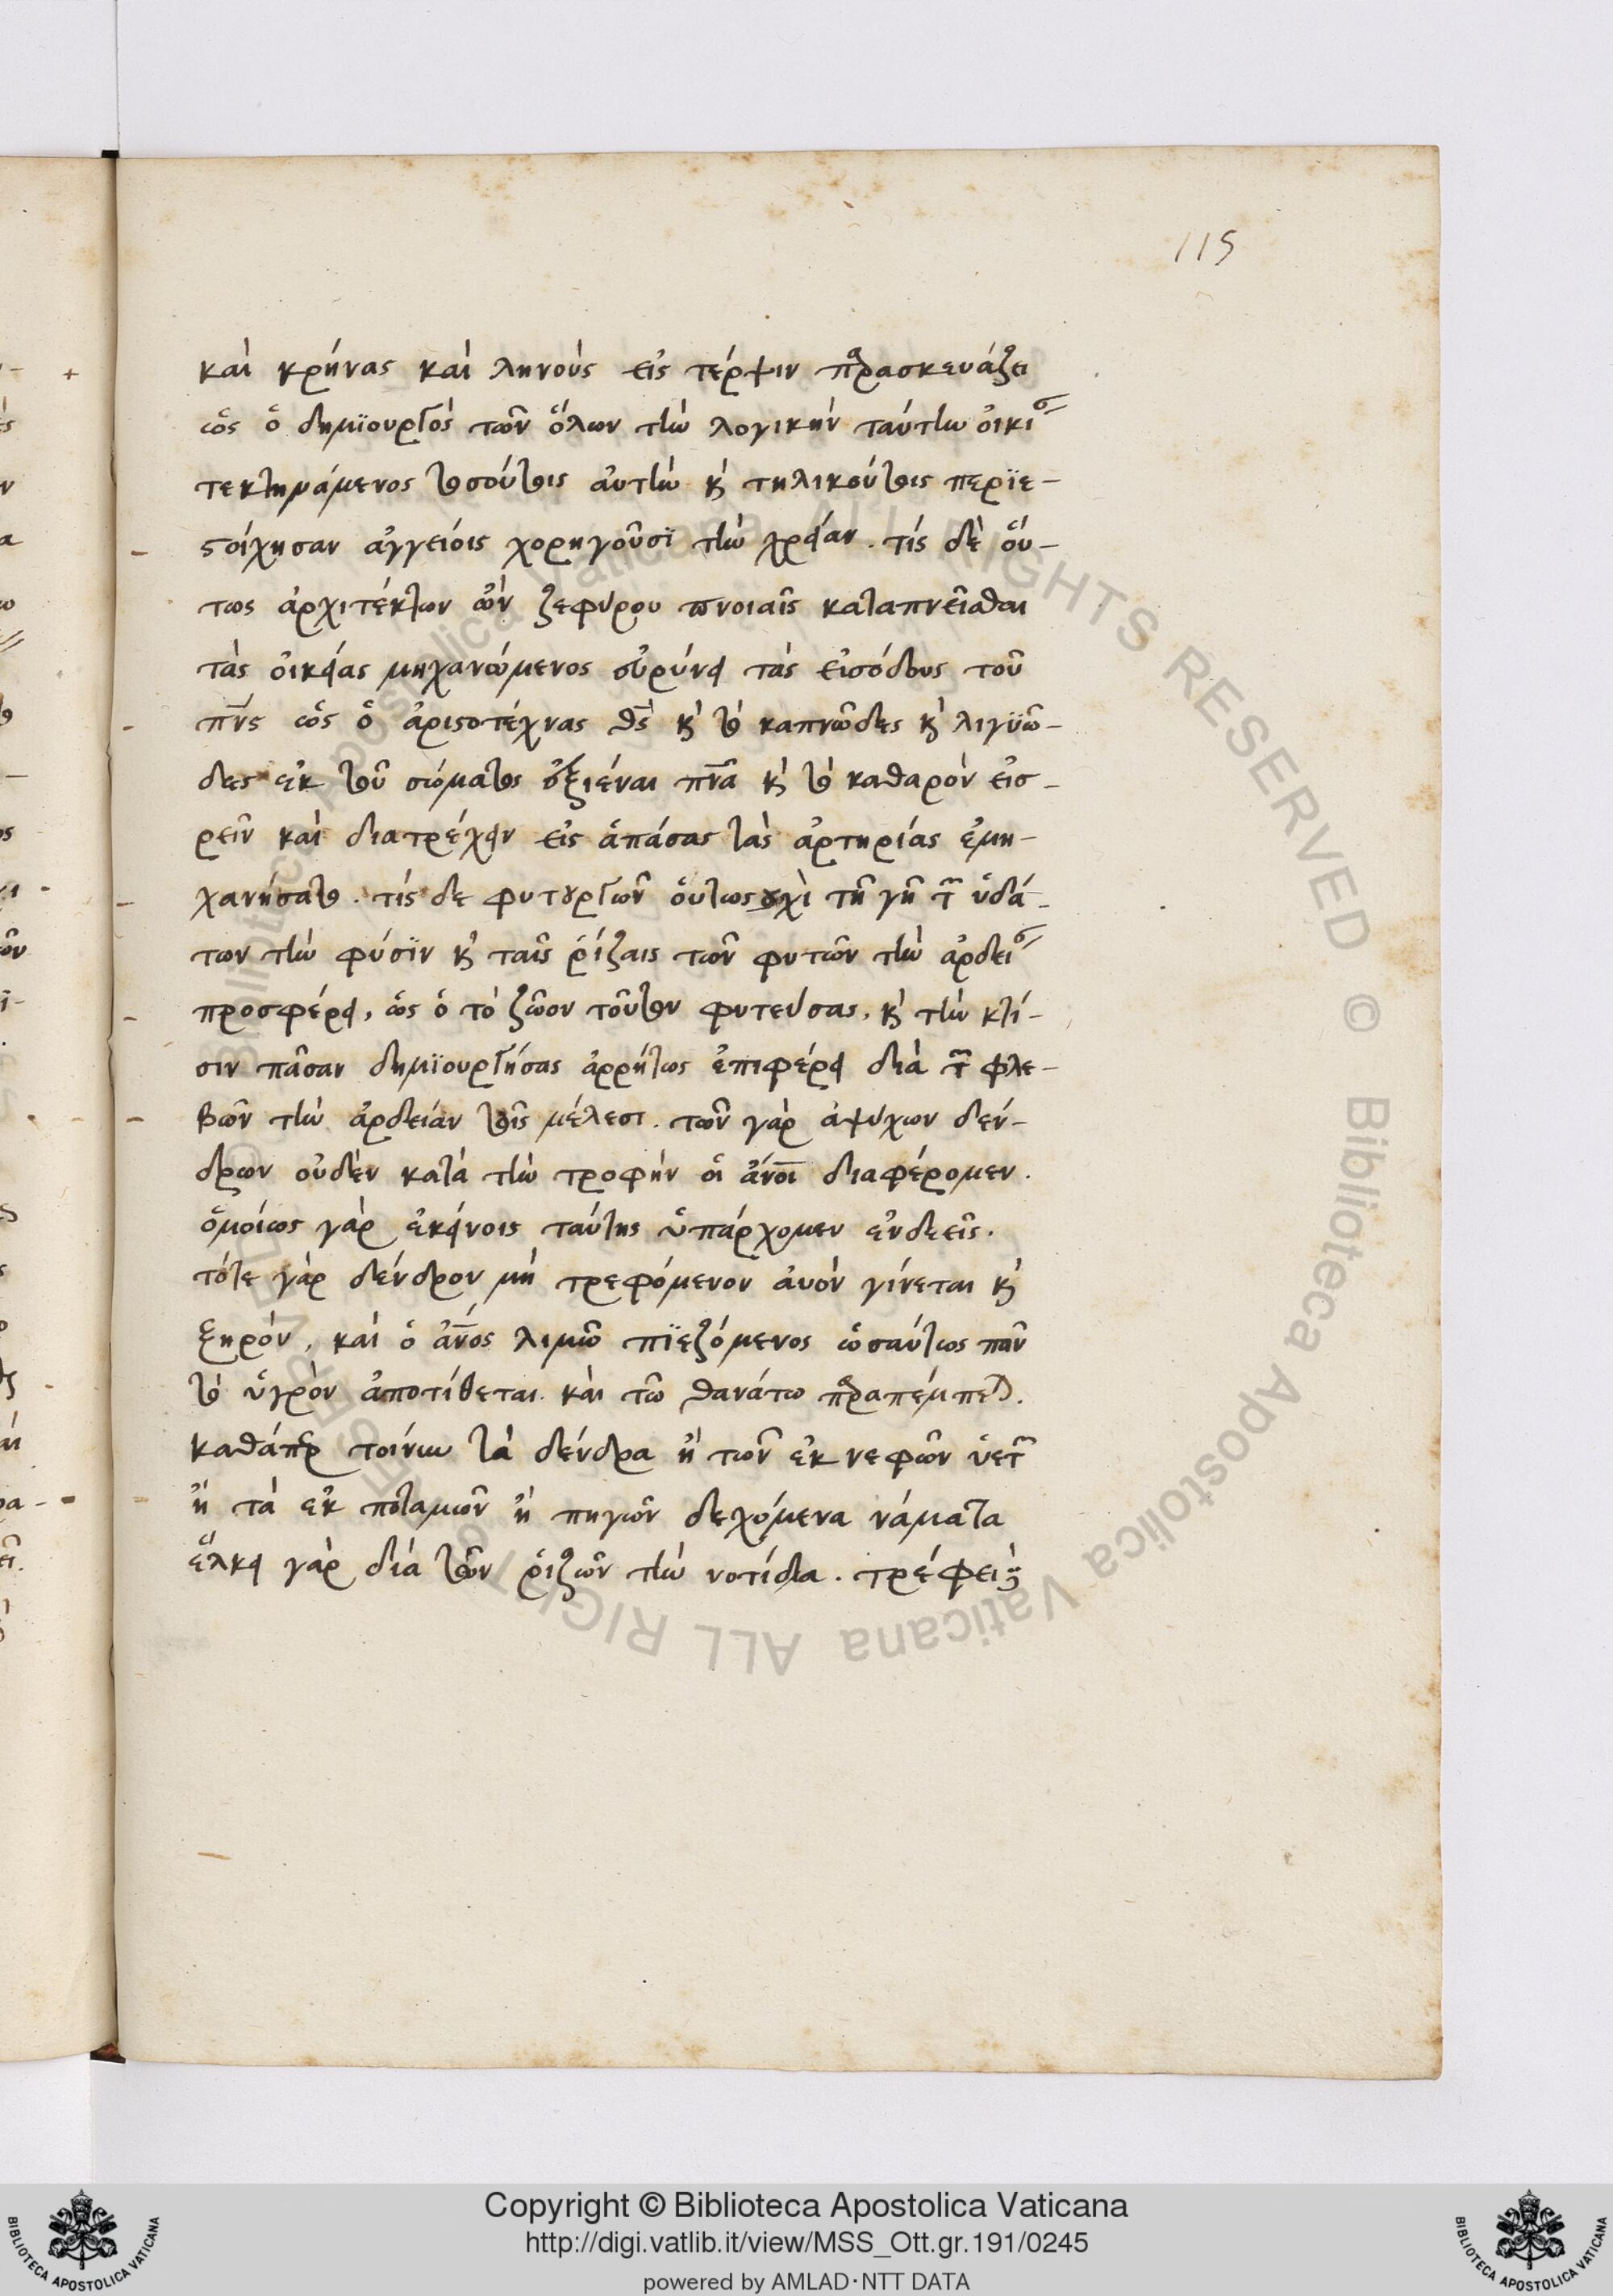 115
καὶ κρήνας καὶ ληνοὺς εἰς τέρψιν πρασκευάζει
ὡς ὁ δημϊουργὸς τῶν ὅλων τὴν λογικὴν ταύτην οἰκί
τεκτηνάμενος τοσούτοις αὐτὴν κ τηλικούτοις περϊε-
στοίχησαν ἀγγείοις χορηγοῦσϊ τὴν χρείαν. τίς δὲ οὕ-
τως ἀρχιτέκτων ὢν ζεφύρου πνοιαῖς καταπνεῖσθαι
τὰς οἰκείας μηχανώμενος εὐρύνει τὰς εἰσόδους τοῦ
πνς ὡς ὁ ἀριστοτέχνας θς κ τὸ καπνῶδες κ λιγϋῶ-
δες ἐκ τοῦ σώματος ἐξιέναι πνα κ τὸ καθαρὸν εἰσ-
ρεῖν καὶ διατρέχειν εἰς ἁπάσας τὰς ἀρτηρίας ἐμη-
χανήσατο. τίς δε φυτουργῶν οὕτως οὐχὶ τῇ γῇ τ ὑδά-
των τὴν φύσϊν κ ταῖς ῥίζαις τῶν φυτῶν τὴν ἀρδεί
προσφέρει, ὡς ὁ τὸ ζῶον τοῦτον φυτεύσας, κ τὴν κτί-
σιν πᾶσαν δημϊουργήσας ἀρρήτως ἐπιφέρει διὰ τ φλε-
βῶν τὴν ἀρδείαν τοῖς μέλεσι. τῶν γὰρ ἀψύχων δέν-
δρων οὐδὲν κατὰ τὴν τροφὴν οἱ ἄνοι διαφέρομεν.
ὁμοίως γὰρ ἐκείνοις ταύτης ὑπάρχομεν ἐνδεεῖς.
τότε γὰρ δένδρον μὴ τρεφόμενον αὐὸν γίνεται κ
ξηρόν, καὶ ὁ ἄνος λιμῶ πϊεζόμενος ὡσαύτως παν
τὸ ὑγρὸν ἀποτίθεται. καὶ τῶ θανάτω πραπέμπεται.
καθάπερ τοίνυν τὰ δένδρα ἢ τῶν ἐκ νεφῶν ὑετ
ἢ τὰ ἐκ ποταμῶν ἢ πηγῶν δεχόμενα νάματα
ἕλκει γὰρ διὰ τῶν ῥιζῶν τὴν νοτίδα. τρέφει
Copyright © Biblioteca Apostolica Vaticana
http://digi.vatlib.it/view/MSS_Ott.gr.191/0245
powered by AMLAD·NTT DATA
© Biblioteca Apostolica Vaticana ALL RIGHTS RESERVED
© Biblioteca Apostolica Vaticana ALL RIGHTS RESERVED
BIBLIOTECA APOSTOLICA VATICANA
BIBLIOTECA APOSTOLICA VATICANA